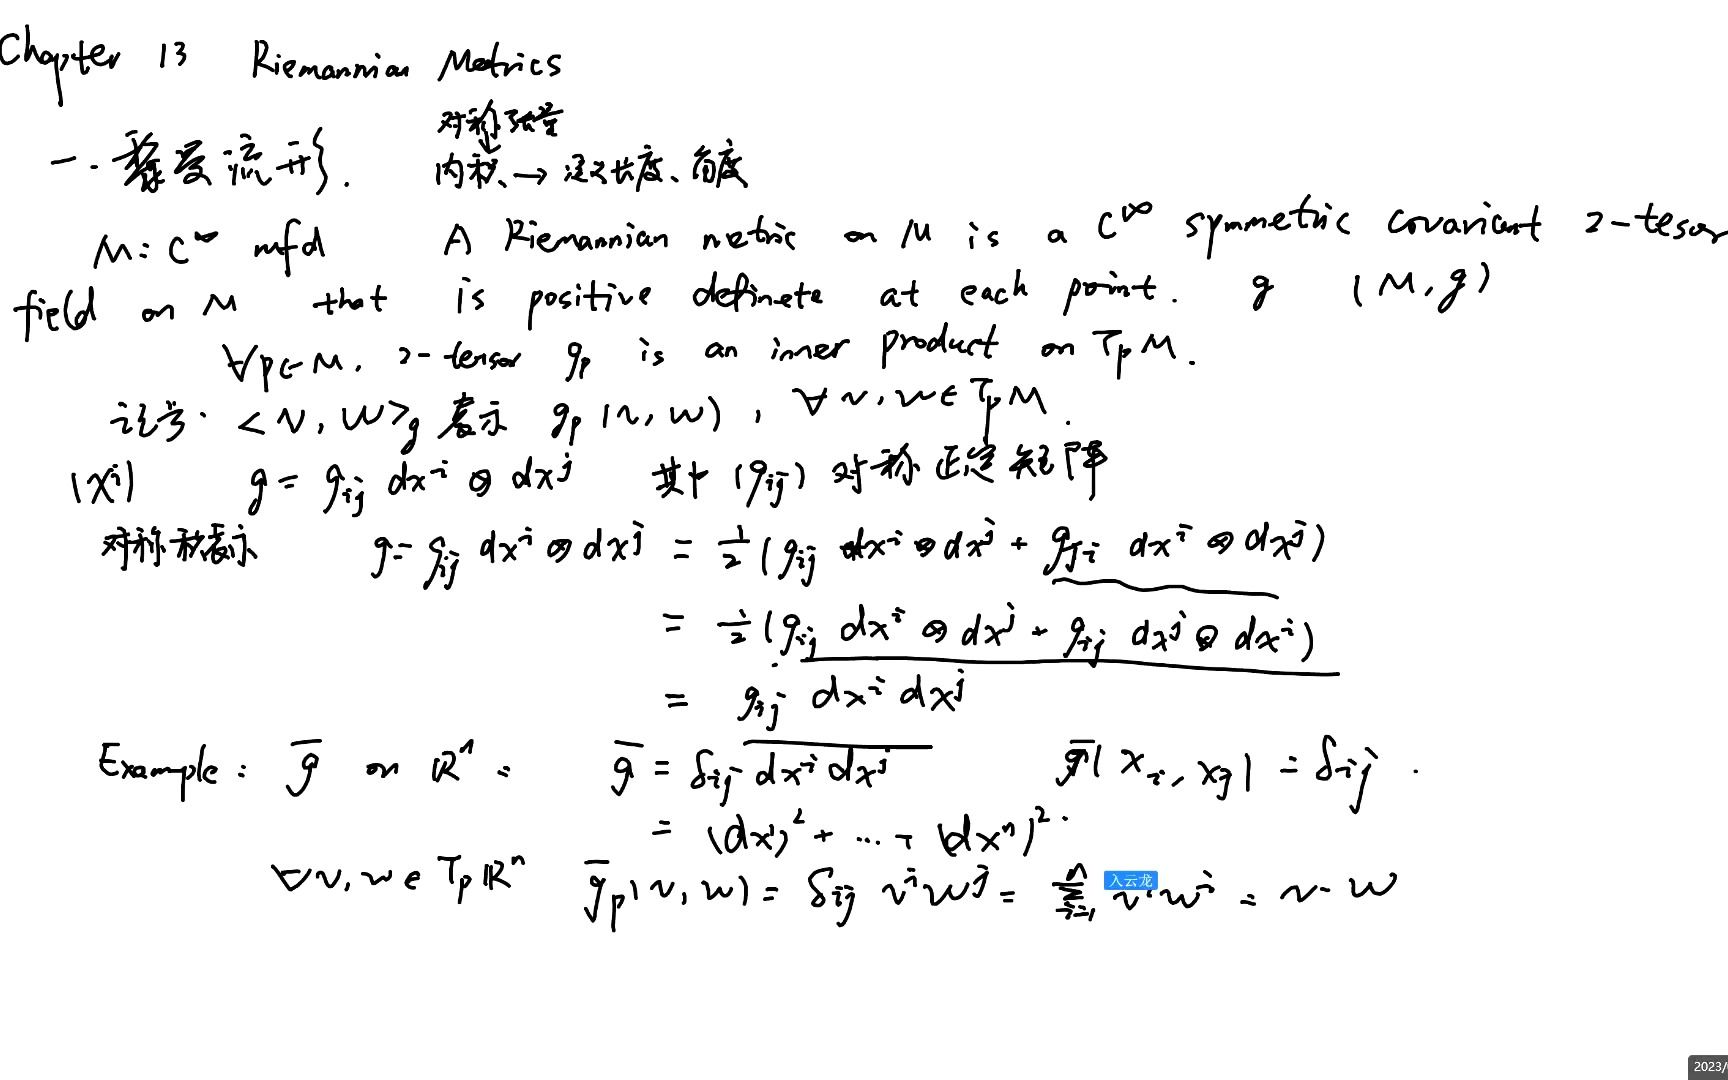 Chapter 13 Riemannian Metrics
对称张量
一. 黎曼流形. 内积 → 定义长度、角度
M: C^∞ mfd A Riemannian metric on M is a C^∞ symmetric covariant 2-tesor
field on M that is positive definete at each point. g (M, g)
∀p∈M, 2-tensor g_p is an inner product on T_pM.
记号. <v, w>_g 表示 g_p(v, w), ∀ v, w ∈ T_pM.
(x^i) g = g_{ij} dx^i ⊗ dx^j 其中 (g_{ij}) 对称正定矩阵
对称积表示 g = g_{ij} dx^i ⊗ dx^j = 1/2 (g_{ij} dx^i ⊗ dx^j + g_{ji} dx^i ⊗ dx^j)
= 1/2 (g_{ij} dx^i ⊗ dx^j + g_{ij} dx^j ⊗ dx^i)
= g_{ij} dx^i dx^j
Example: \bar{g} on ℝ^n: \bar{g} = δ_{ij} dx^i dx^j \bar{g}(x_i, x_j) = δ_{ij}.
= (dx^1)^2 + ... + (dx^n)^2.
∀ v, w ∈ T_pℝ^n \bar{g}_p(v, w) = δ_{ij} v^i w^j = \sum_{i=1}^n v^i w^i = v · w
入云龙
2023/